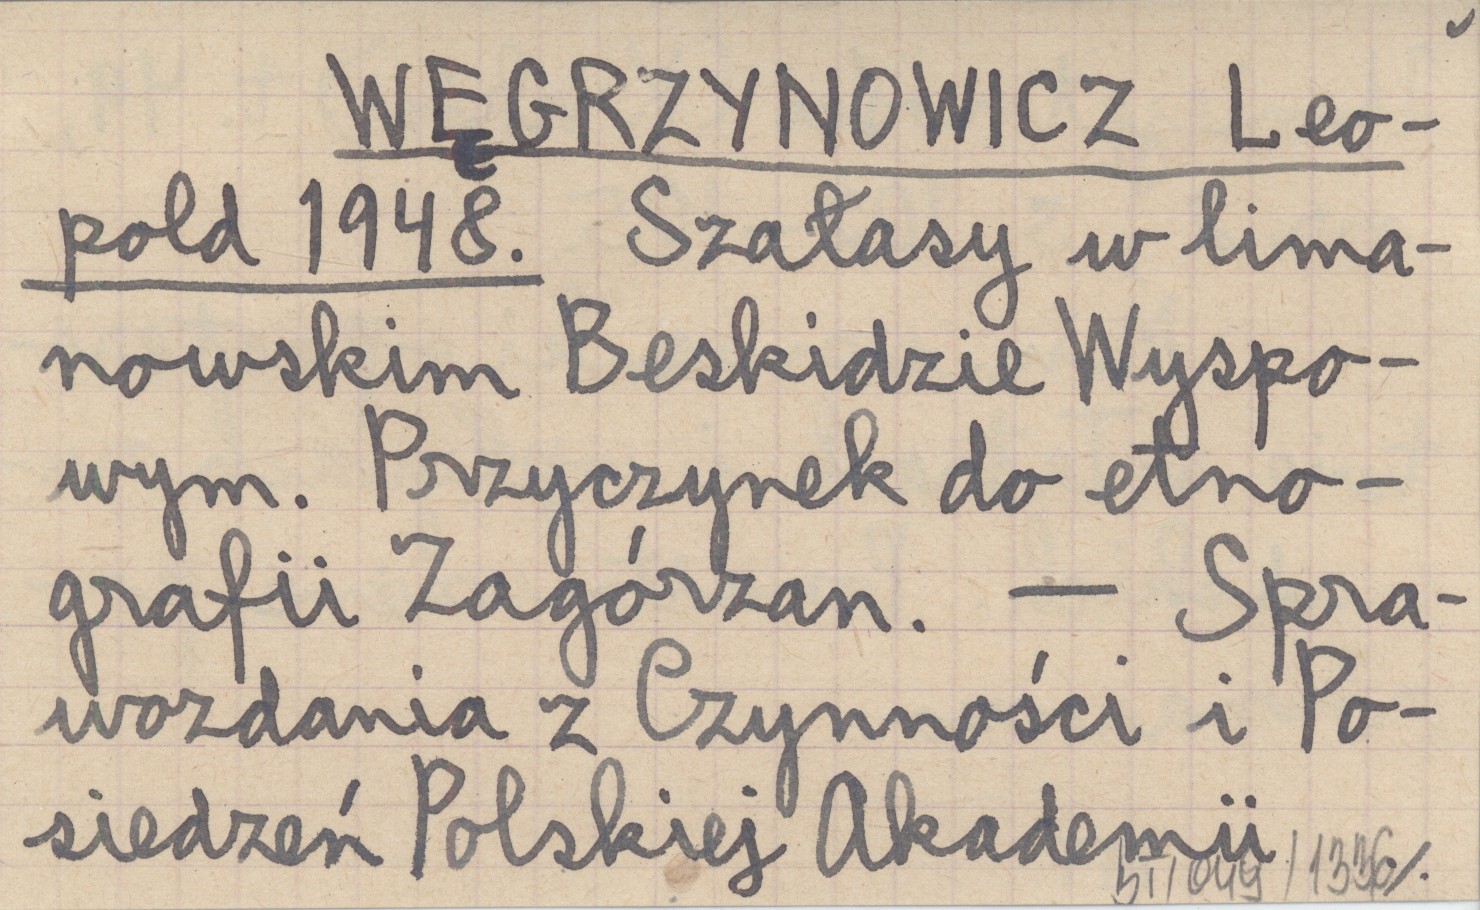 WĘGRZYNOWICZ Leo-
pold 1948. Szałasy w lima-
nowskim Beskidzie Wyspo-
wym. Przyczynek do etno-
grafii Zagórzan. — Spra-
wozdania z Czynności i Po-
siedzeń Polskiej Akademii
/1336/.